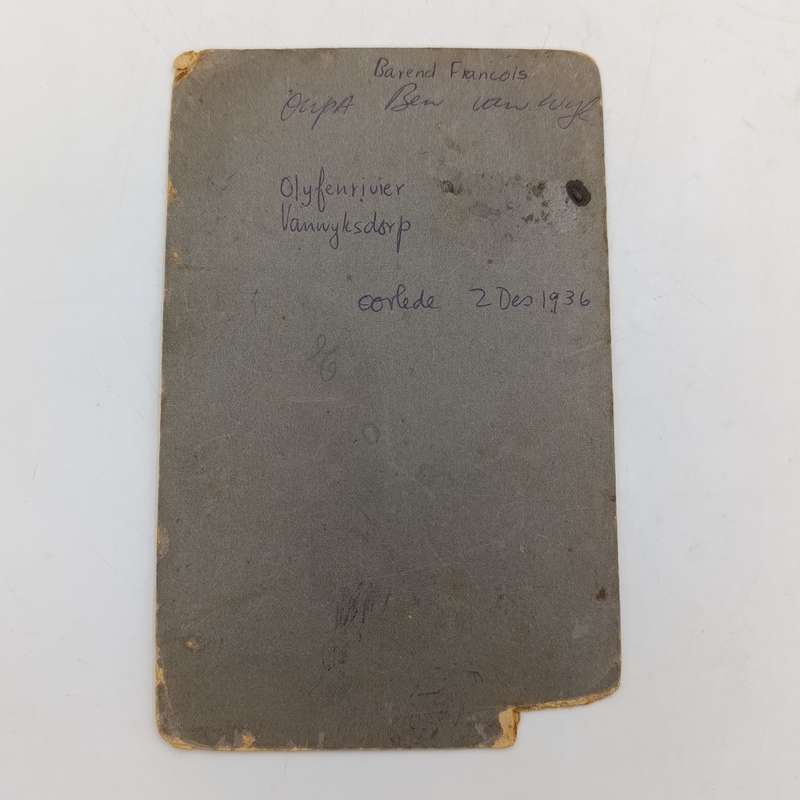 Barend Francois
OupA Ben van Wyk
Olyfenrivier
Vanwyksdorp
oorlede 2 Des 1936